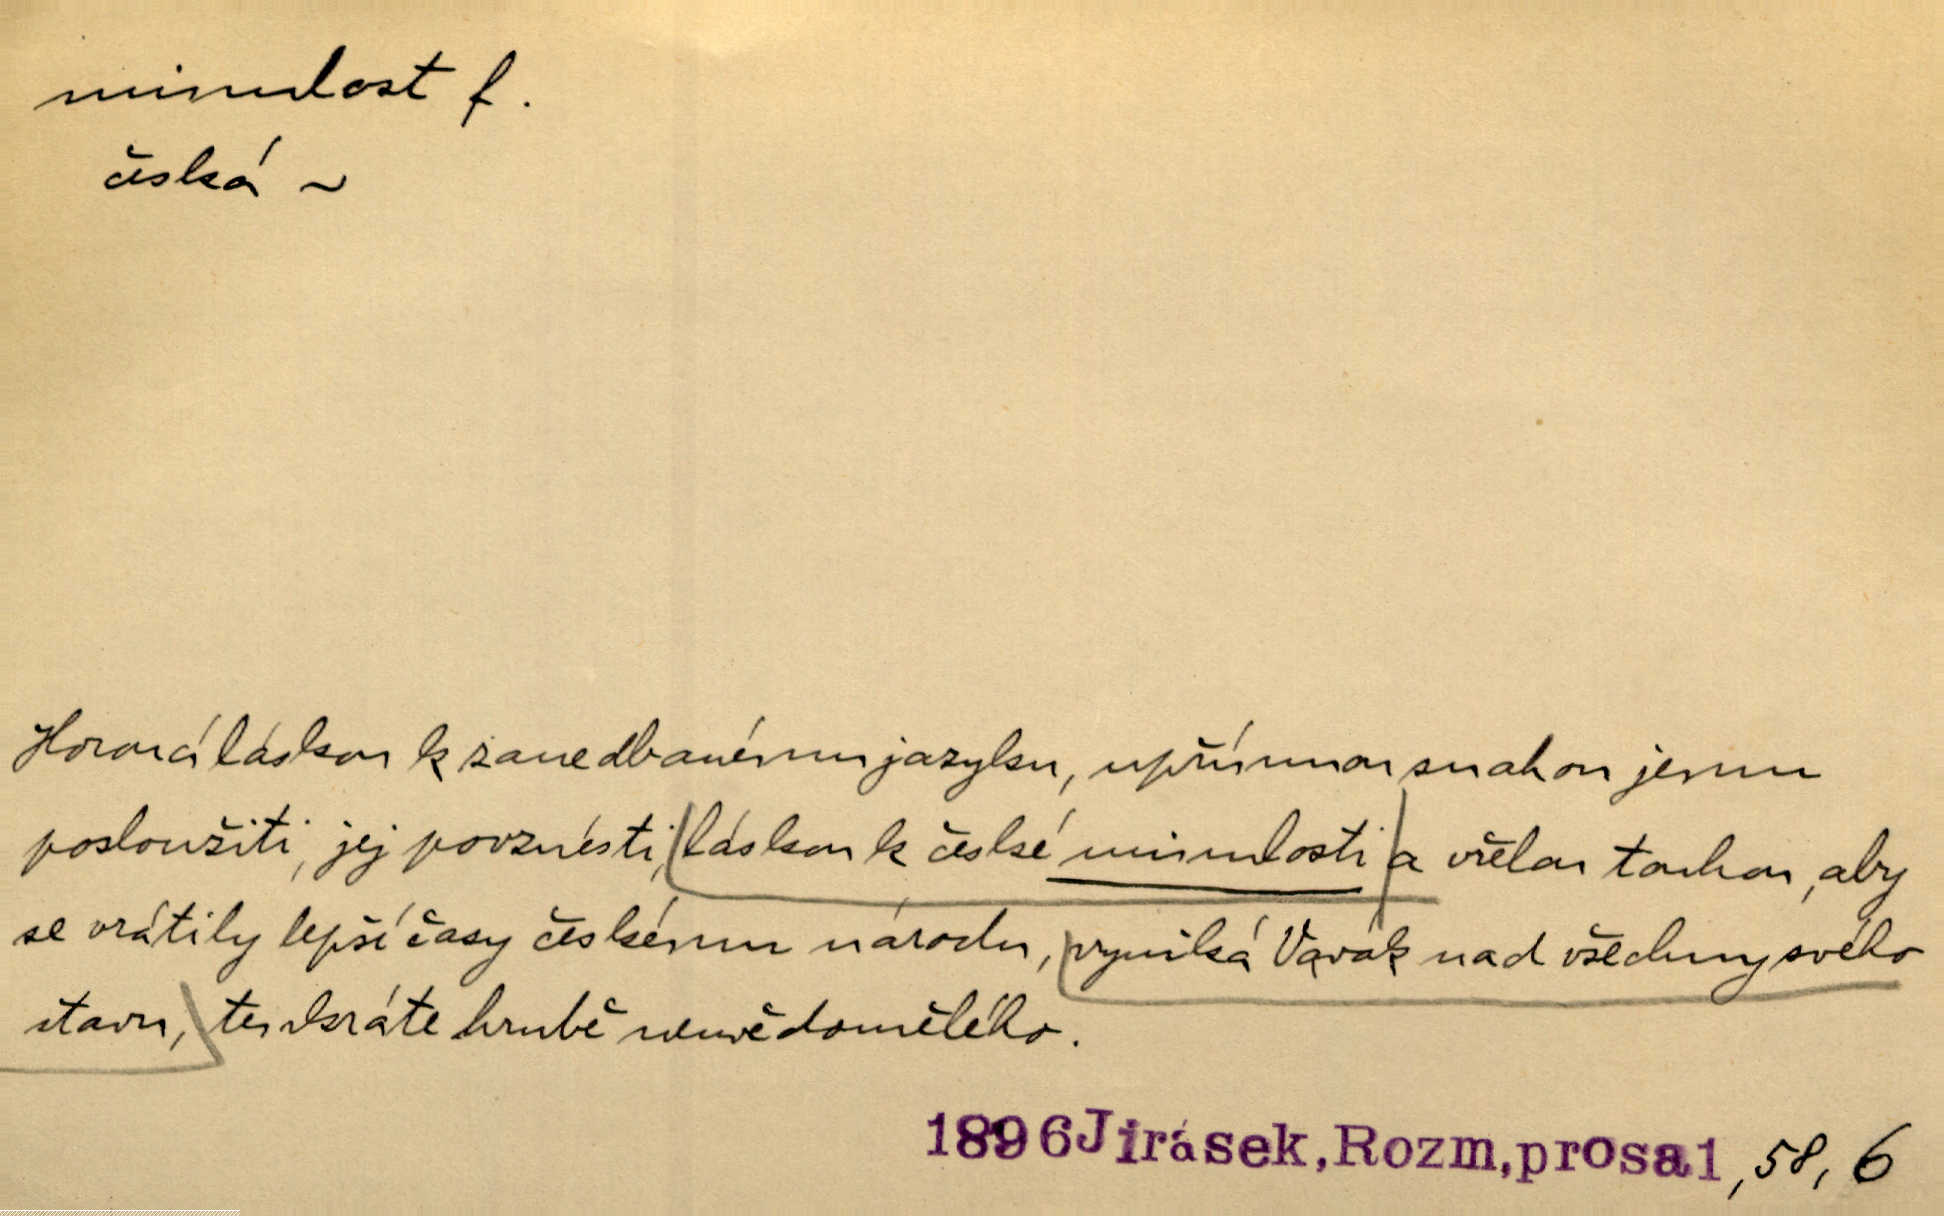 minulost f.
česká ~
Horoucí láskou k zanedbanému jazyku, upřímnou snahou jemu
posloužiti, jej povznésti, láskou k české minulosti a vřelou touhou, aby
se vrátily lepší časy českému národu, vyniká Vavák nad všechny svého
stavu, tenkráte hrubě neuvědomělého.
1896 Jirásek, Rozm, prosa1, 58, 6